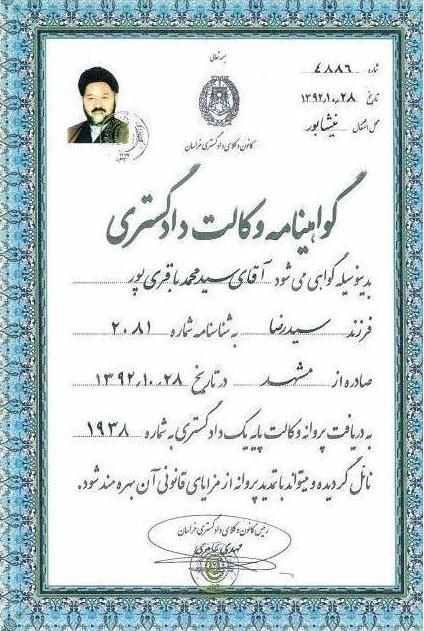 بسمه تعالی
شماره ۴۸۸۶
تاریخ ۱۳۹۲٫۱۰٫۲۸
محل اشتغال نیشابور
کانون وکلای دادگستری خراسان
گواهینامه وکالت دادگستری
بدینوسیله گواهی می شود آقای سید محمد باقری پور
فرزند سیدرضا به شناسنامه شماره ۲۰۸۱
صادره از مشهد در تاریخ ۱۳۹۲٫۱۰٫۲۸
به دریافت پروانه وکالت پایه یک دادگستری به شماره ۱۹۳۸
نائل گردیده و میتواند با تمدید پروانه از مزایای قانونی آن بهره مند شود.
رئیس کانون وکلای دادگستری خراسان
مهدی عامری